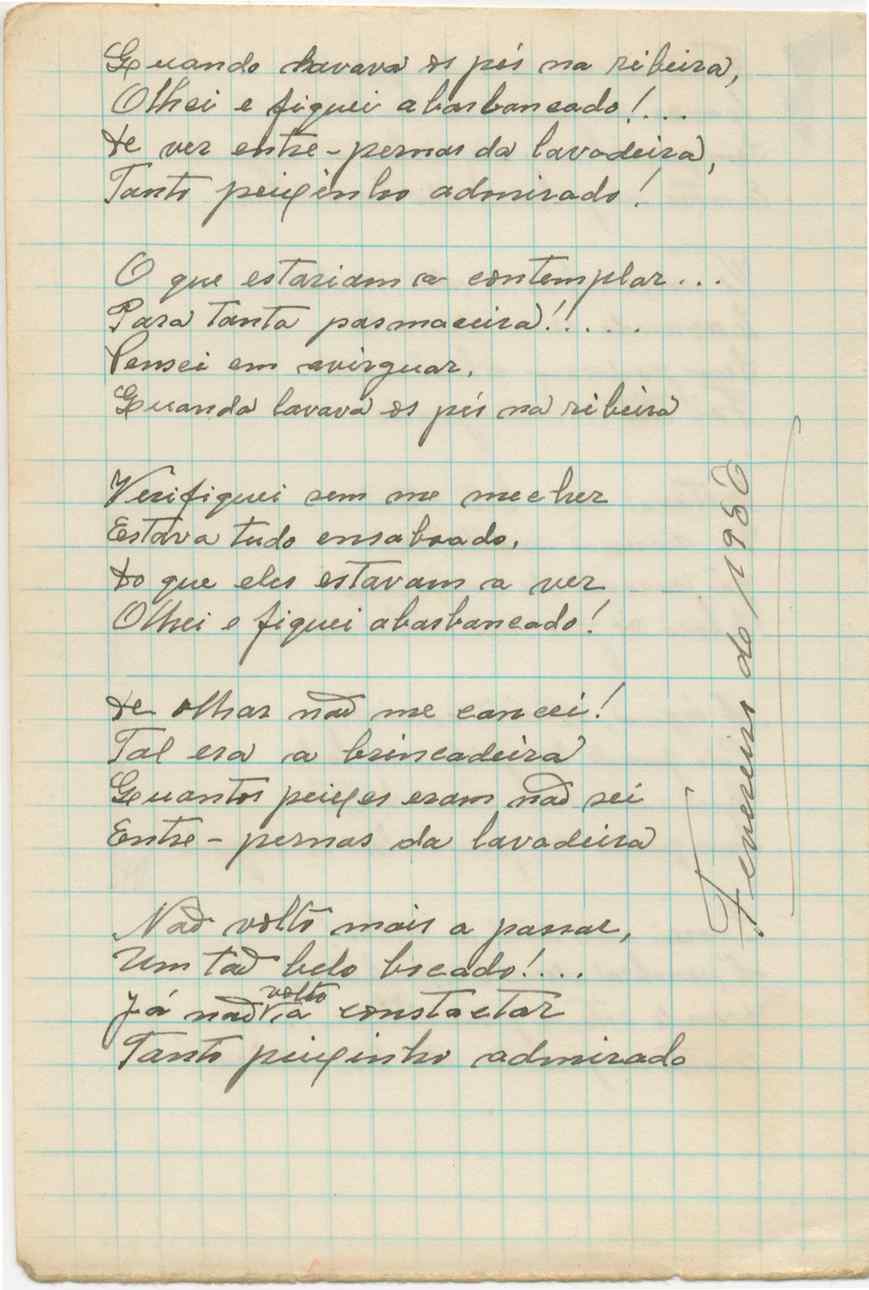 Quando lavava os pés na ribeira,
Olhei e fiquei abasbancado!...
De ver entre-pernas da lavadeira,
Tanto peixinho admirado!
O que estariam a contemplar...
Para tanta pasmaceira!!....
Pensei em avirguar,
Quando lavava os pés na ribeira
Verifiquei sem me mecher
Estava tudo ensaboado,
Do que eles estavam a ver
Olhei e fiquei abasbancado!
De olhar não me cancei!
Tal era a brincadeira
Quantos peixes eram não sei
Entre-pernas da lavadeira
Não volto mais a passar,
Um tão belo bocado!...
Já não volto a constactar
Tanto peixinho admirado
Fevereiro de